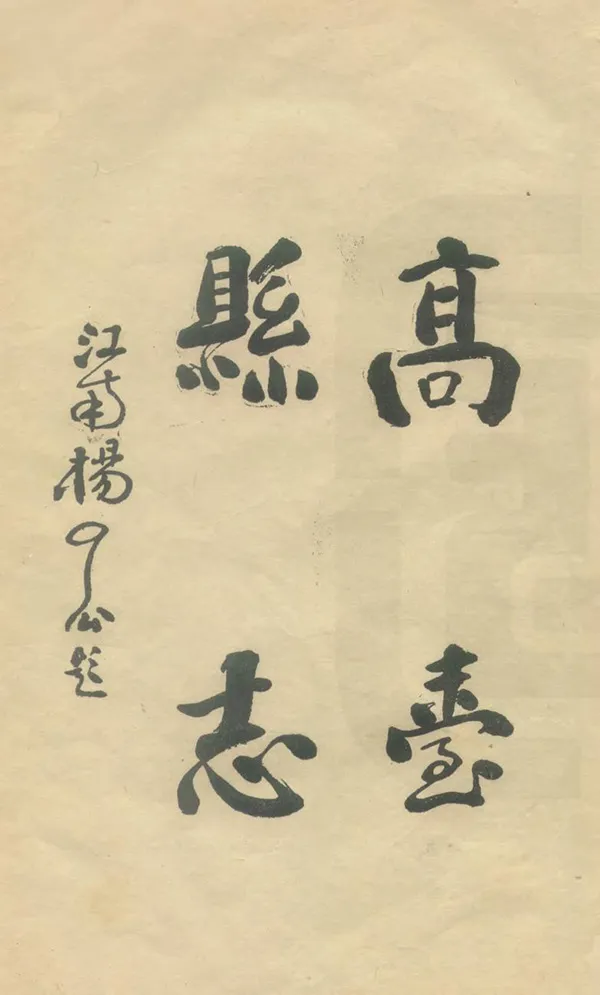 高臺
縣志
江南楊了公題